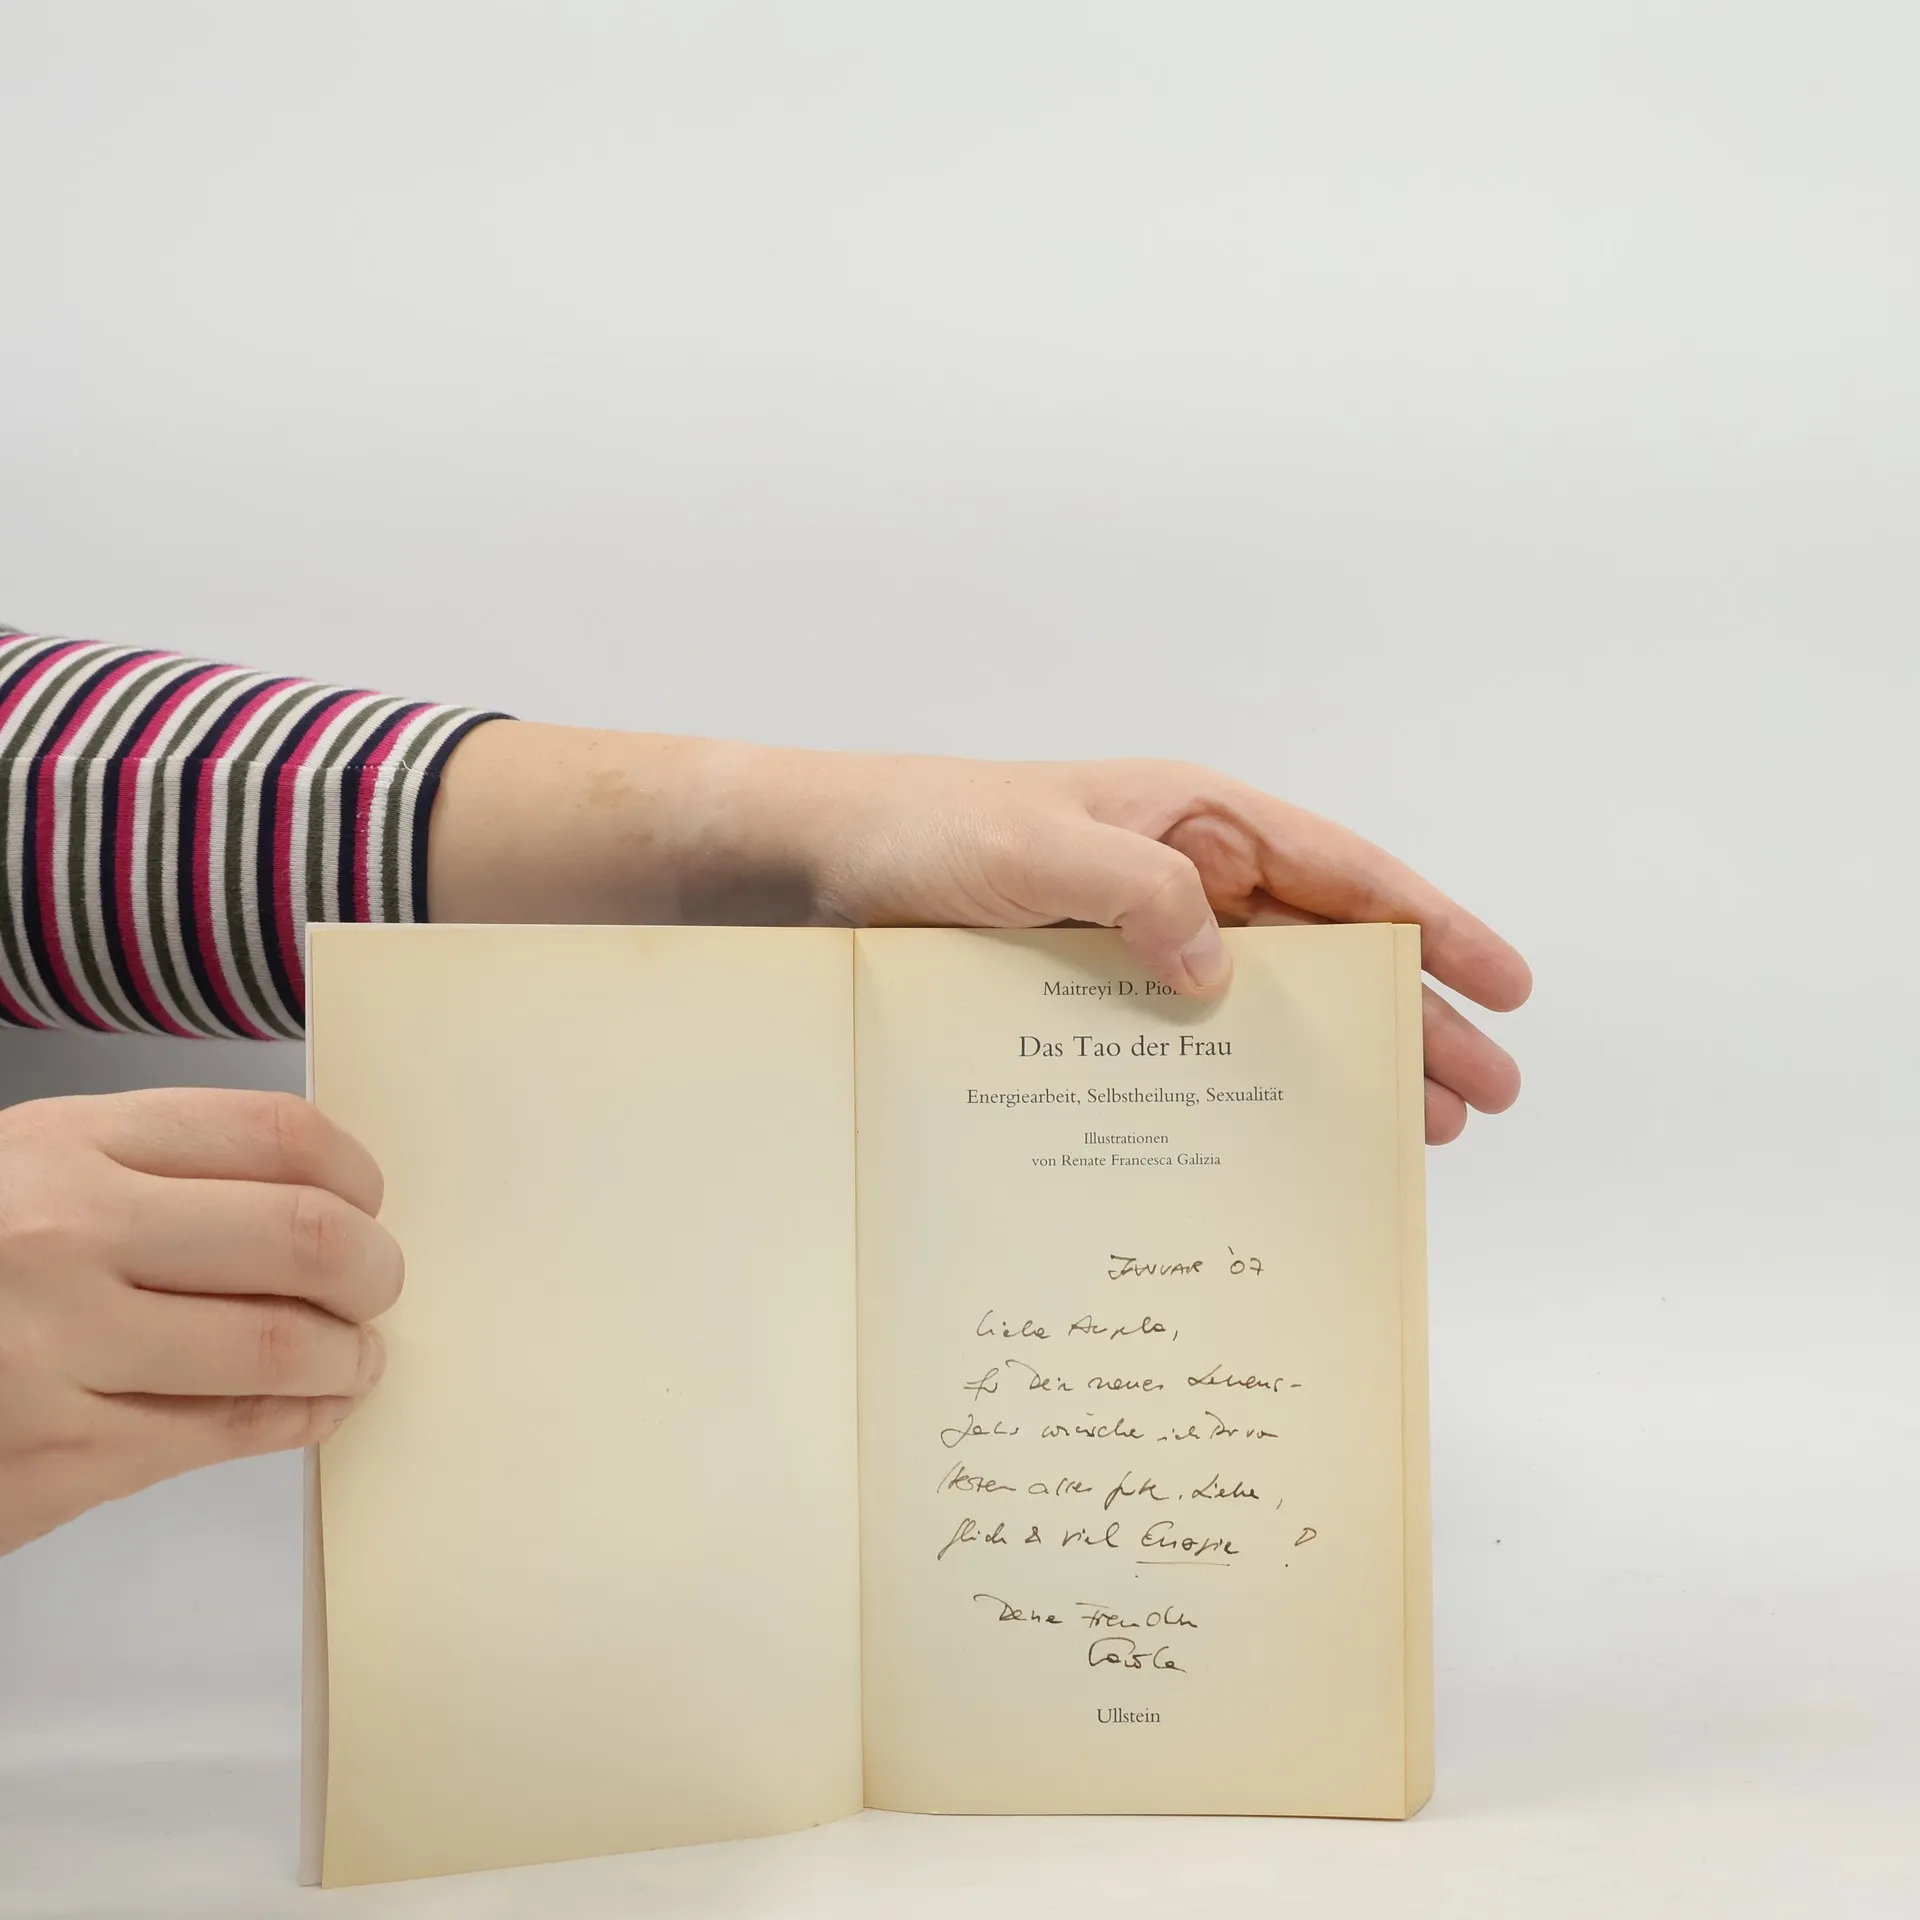 Maitreyi D. Pio
Das Tao der Frau
Energiearbeit, Selbstheilung, Sexualität
Illustrationen
von Renate Francesca Galizia
JANUAR '07
Liebe Angela,
für Dein neues Lebens-
Jahr wünsche ich Dir von
Herzen alles Gute, Liebe,
Glück & viel Energie !
Deine Freundin
Carola
Ullstein